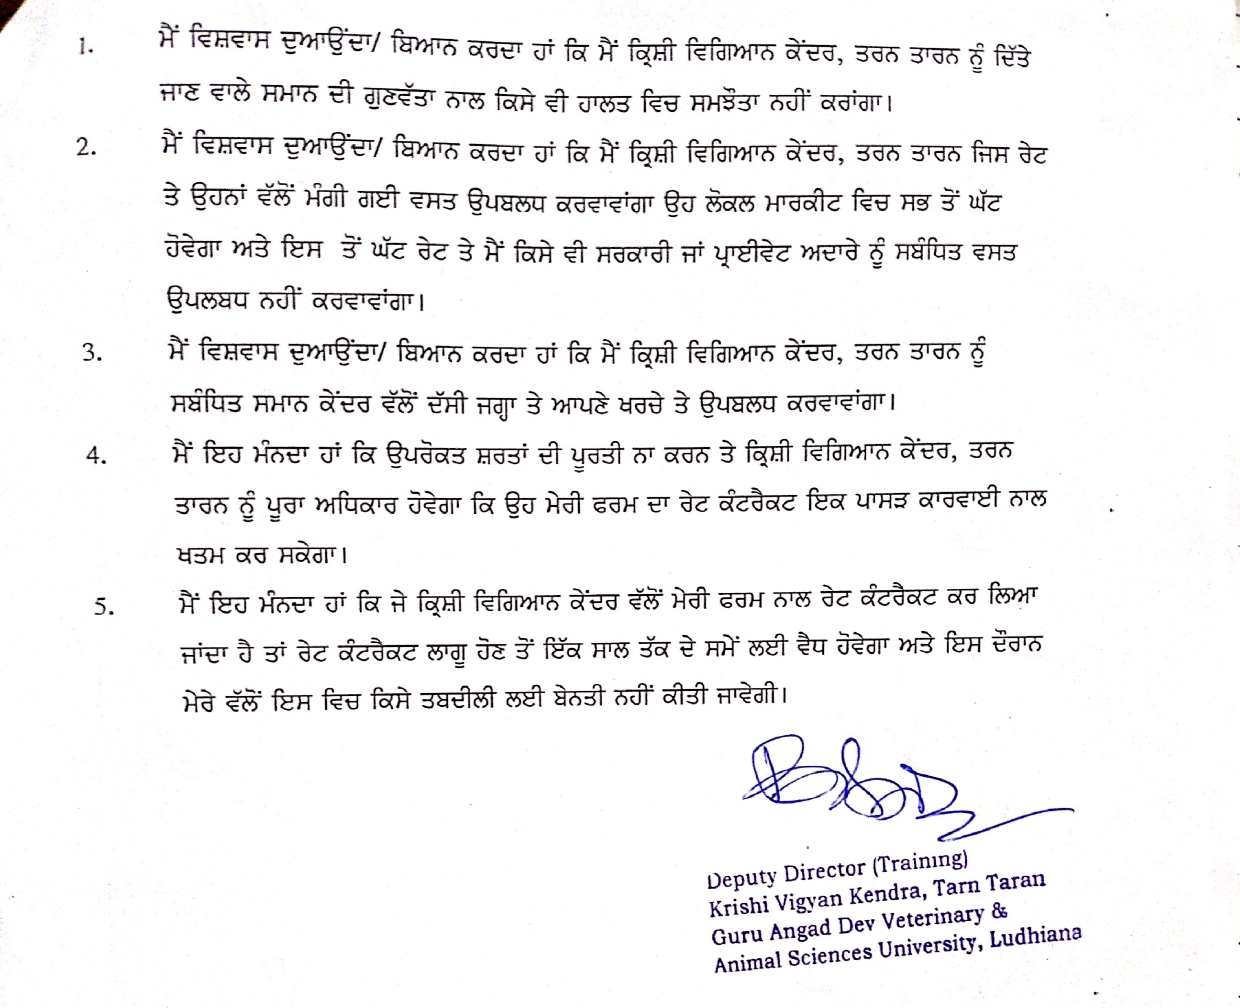 1. ਮੈਂ ਵਿਸ਼ਵਾਸ ਦੁਆਉਂਦਾ/ ਬਿਆਨ ਕਰਦਾ ਹਾਂ ਕਿ ਮੈਂ ਕ੍ਰਿਸ਼ੀ ਵਿਗਿਆਨ ਕੇਂਦਰ, ਤਰਨ ਤਾਰਨ ਨੂੰ ਦਿੱਤੇ
ਜਾਣ ਵਾਲੇ ਸਮਾਨ ਦੀ ਗੁਣਵੱਤਾ ਨਾਲ ਕਿਸੇ ਵੀ ਹਾਲਤ ਵਿਚ ਸਮਝੌਤਾ ਨਹੀਂ ਕਰਾਂਗਾ।
2. ਮੈਂ ਵਿਸ਼ਵਾਸ ਦੁਆਉਂਦਾ/ ਬਿਆਨ ਕਰਦਾ ਹਾਂ ਕਿ ਮੈਂ ਕ੍ਰਿਸ਼ੀ ਵਿਗਿਆਨ ਕੇਂਦਰ, ਤਰਨ ਤਾਰਨ ਜਿਸ ਰੇਟ
ਤੇ ਉਹਨਾਂ ਵੱਲੋਂ ਮੰਗੀ ਗਈ ਵਸਤ ਉਪਬਲਧ ਕਰਵਾਵਾਂਗਾ ਉਹ ਲੋਕਲ ਮਾਰਕੀਟ ਵਿਚ ਸਭ ਤੋਂ ਘੱਟ
ਹੋਵੇਗਾ ਅਤੇ ਇਸ ਤੋਂ ਘੱਟ ਰੇਟ ਤੇ ਮੈਂ ਕਿਸੇ ਵੀ ਸਰਕਾਰੀ ਜਾਂ ਪ੍ਰਾਈਵੇਟ ਅਦਾਰੇ ਨੂੰ ਸਬੰਧਿਤ ਵਸਤ
ਉਪਲਬਧ ਨਹੀਂ ਕਰਵਾਵਾਂਗਾ।
3. ਮੈਂ ਵਿਸ਼ਵਾਸ ਦੁਆਉਂਦਾ/ ਬਿਆਨ ਕਰਦਾ ਹਾਂ ਕਿ ਮੈਂ ਕ੍ਰਿਸ਼ੀ ਵਿਗਿਆਨ ਕੇਂਦਰ, ਤਰਨ ਤਾਰਨ ਨੂੰ
ਸਬੰਧਿਤ ਸਮਾਨ ਕੇਂਦਰ ਵੱਲੋਂ ਦੱਸੀ ਜਗ੍ਹਾ ਤੇ ਆਪਣੇ ਖਰਚੇ ਤੇ ਉਪਬਲਧ ਕਰਵਾਵਾਂਗਾ।
4. ਮੈਂ ਇਹ ਮੰਨਦਾ ਹਾਂ ਕਿ ਉਪਰੋਕਤ ਸ਼ਰਤਾਂ ਦੀ ਪੂਰਤੀ ਨਾ ਕਰਨ ਤੇ ਕ੍ਰਿਸ਼ੀ ਵਿਗਿਆਨ ਕੇਂਦਰ, ਤਰਨ
ਤਾਰਨ ਨੂੰ ਪੂਰਾ ਅਧਿਕਾਰ ਹੋਵੇਗਾ ਕਿ ਉਹ ਮੇਰੀ ਫਰਮ ਦਾ ਰੇਟ ਕੰਟਰੈਕਟ ਇਕ ਪਾਸੜ ਕਾਰਵਾਈ ਨਾਲ
ਖਤਮ ਕਰ ਸਕੇਗਾ।
5. ਮੈਂ ਇਹ ਮੰਨਦਾ ਹਾਂ ਕਿ ਜੇ ਕ੍ਰਿਸ਼ੀ ਵਿਗਿਆਨ ਕੇਂਦਰ ਵੱਲੋਂ ਮੇਰੀ ਫਰਮ ਨਾਲ ਰੇਟ ਕੰਟਰੈਕਟ ਕਰ ਲਿਆ
ਜਾਂਦਾ ਹੈ ਤਾਂ ਰੇਟ ਕੰਟਰੈਕਟ ਲਾਗੂ ਹੋਣ ਤੋਂ ਇੱਕ ਸਾਲ ਤੱਕ ਦੇ ਸਮੇਂ ਲਈ ਵੈਧ ਹੋਵੇਗਾ ਅਤੇ ਇਸ ਦੌਰਾਨ
ਮੇਰੇ ਵੱਲੋਂ ਇਸ ਵਿਚ ਕਿਸੇ ਤਬਦੀਲੀ ਲਈ ਬੇਨਤੀ ਨਹੀਂ ਕੀਤੀ ਜਾਵੇਗੀ।
Deputy Director (Training)
Krishi Vigyan Kendra, Tarn Taran
Guru Angad Dev Veterinary &
Animal Sciences University, Ludhiana